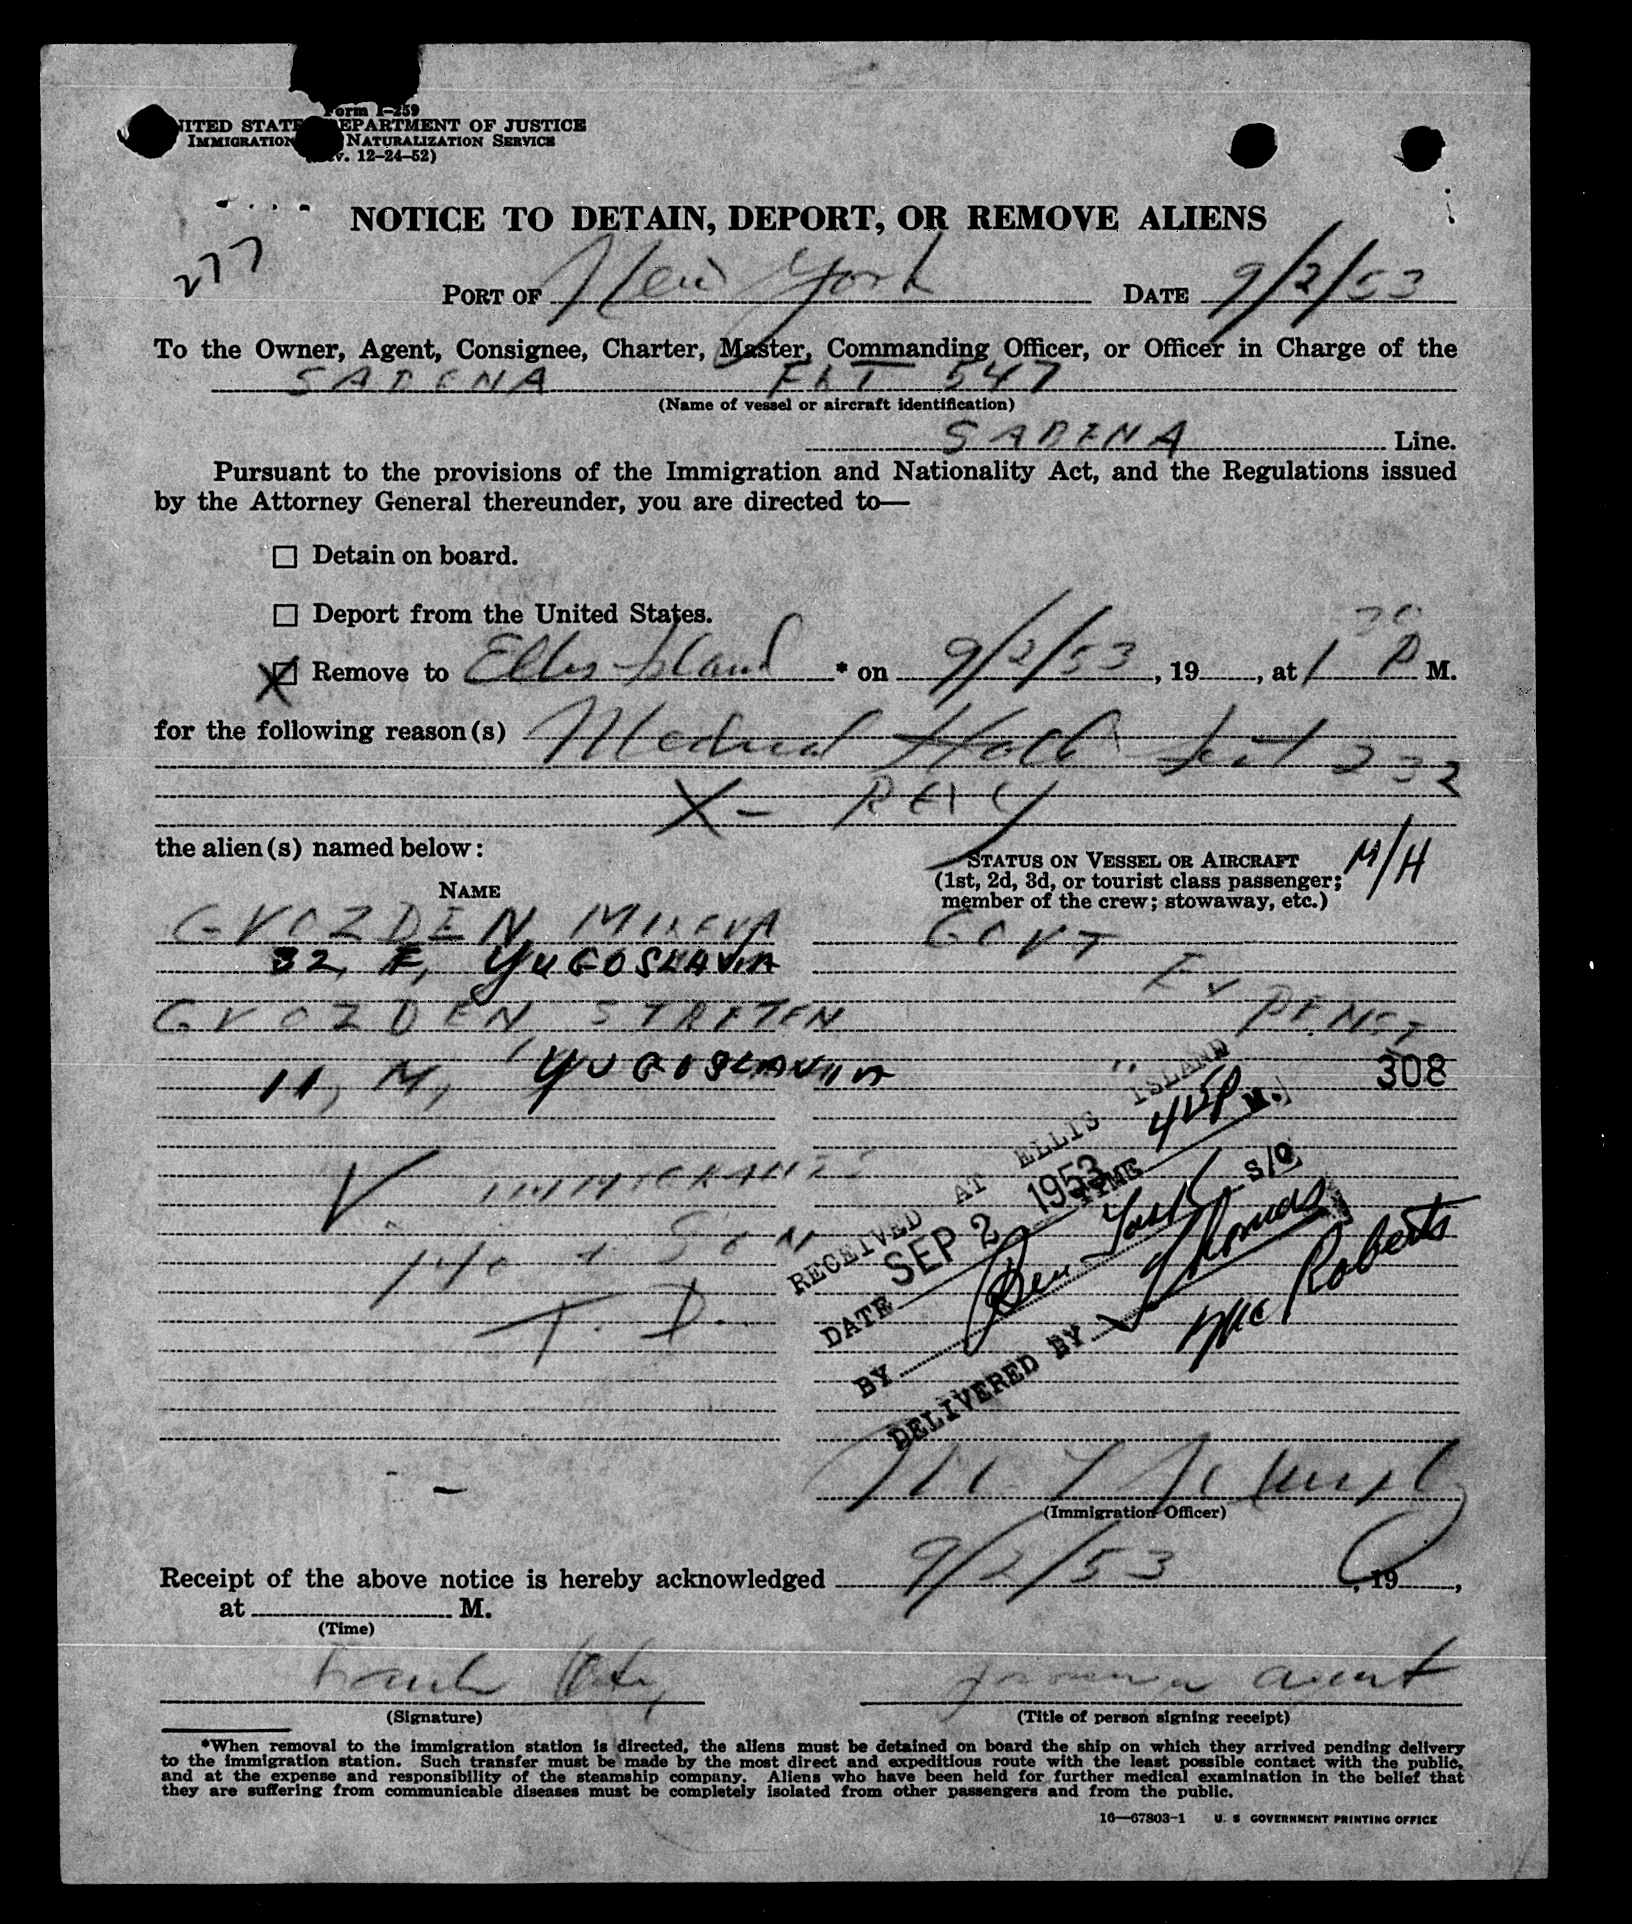 Form I-259
UNITED STATES DEPARTMENT OF JUSTICE
IMMIGRATION NATURALIZATION SERVICE
(Rev. 12-24-52)
NOTICE TO DETAIN, DEPORT, OR REMOVE ALIENS
277
PORT OF New York DATE 9/2/53
To the Owner, Agent, Consignee, Charter, Master, Commanding Officer, or Officer in Charge of the
SABENA FLT 547
(Name of vessel or aircraft identification)
SABENA Line.
Pursuant to the provisions of the Immigration and Nationality Act, and the Regulations issued
by the Attorney General thereunder, you are directed to—
Detain on board.
Deport from the United States.
X Remove to Ellis Island * on 9/2/53, 19, at 1 30 P M.
for the following reason(s) Medical Hold Sect 232
X- RAY
the alien(s) named below:
STATUS ON VESSEL OR AIRCRAFT M/H
(1st, 2d, 3d, or tourist class passenger;
member of the crew; stowaway, etc.)
NAME
GVOZDEN, MILEVA GOVT
32, F, YUGOSLAVIA
EXPENSE
GVOZDEN, STRETEN
11, M, YUGOSLAVIA " 308
V IMMIGRANTS
+ SON
T. D.
RECEIVED AT ELLIS ISLAND
DATE SEP 2 1953 TIME 415P M.
BY S/O
DELIVERED BY Thomas
McRoberts
(Immigration Officer)
Receipt of the above notice is hereby acknowledged 9/2/53, 19,
at M.
(Time)
Frank agent
(Signature) (Title of person signing receipt)
*When removal to the immigration station is directed, the aliens must be detained on board the ship on which they arrived pending delivery
to the immigration station. Such transfer must be made by the most direct and expeditious route with the least possible contact with the public,
and at the expense and responsibility of the steamship company. Aliens who have been held for further medical examination in the belief that
they are suffering from communicable diseases must be completely isolated from other passengers and from the public.
16—67803-1 U. S GOVERNMENT PRINTING OFFICE